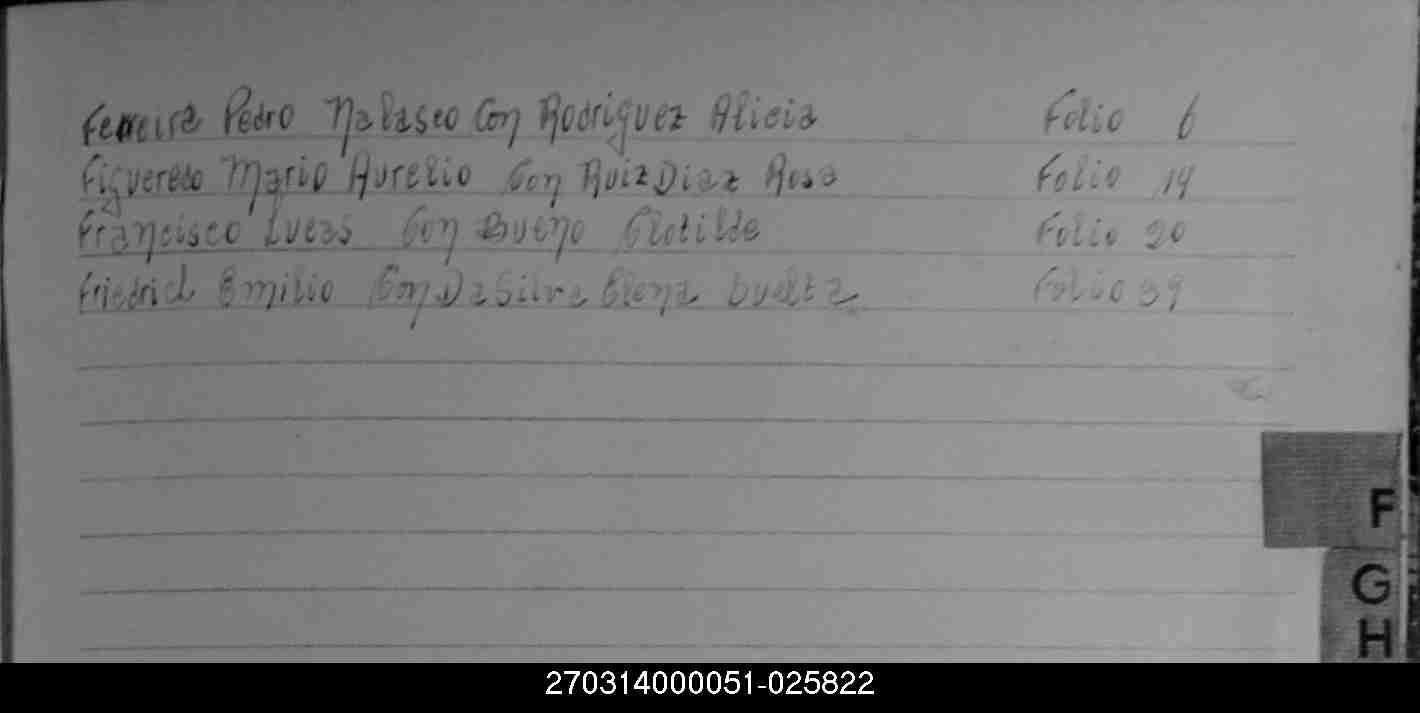 Ferreira Pedro Nalasco Con Rodriguez Alicia Folio 6
Figueredo Mario Aurelio Con Ruiz Diaz Rosa Folio 14
Francisco Lucas Con Bueno Clotilde Folio 20
Friedrich Emilio Con Da Silva Elena Folio 39
F
G
H
270314000051-025822